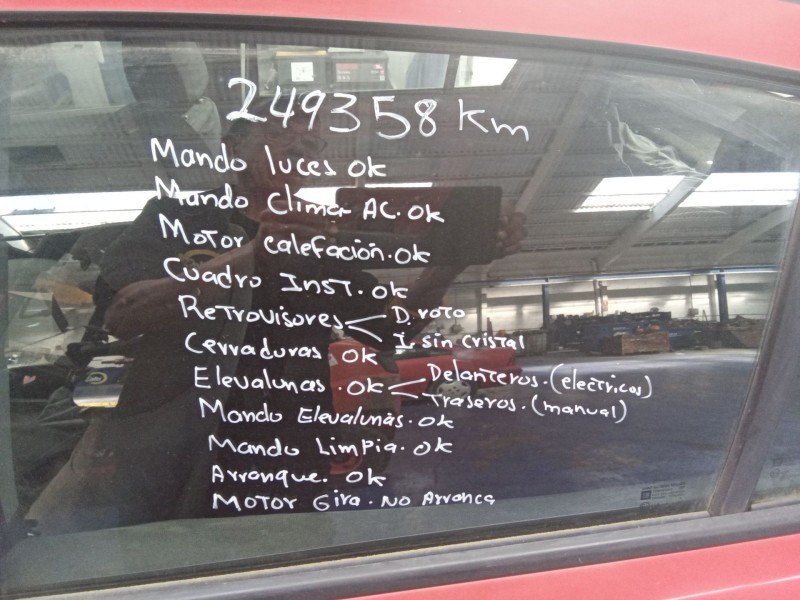 249358 Km
Mando luces ok
Mando clima AC. ok
Motor calefación. ok
Cuadro Inst. ok
Retrovisores D. roto
I. sin cristal
Cerraduras ok
Elevalunas. ok Delanteros. (electricos)
Traseros. (manual)
Mando Elevalunas. ok
Mando Limpia. ok
Arranque. ok
Motor Gira. No Arranca